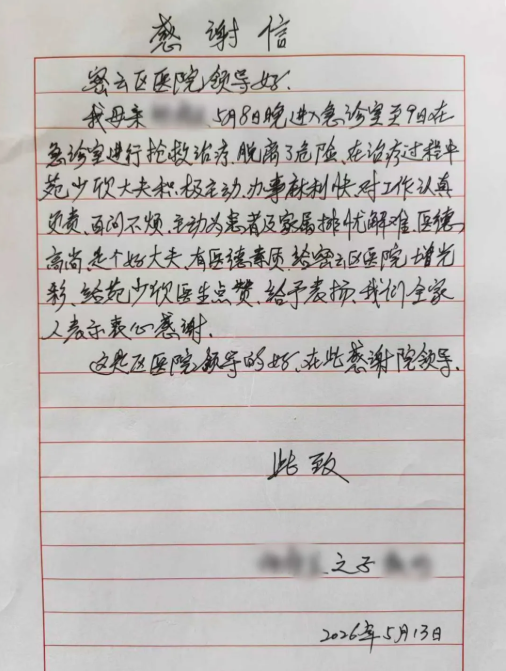 感谢信
密云区医院领导好.
我母亲 5月8日晚进入急诊室至9日在
急诊室进行抢救治疗,脱离了危险,在治疗过程中
苑少欣大夫积极主动,办事麻利快,对工作认真
负责,百问不烦,主动为患者及家属排忧解难,医德
高尚,是个好大夫,有医德素质,给密云区医院增光
彩,给苑少欣医生点赞,给予表扬,我们全家
人表示衷心感谢.
这是区医院领导的好,在此感谢院领导.
此致
之子
2026年5月13日